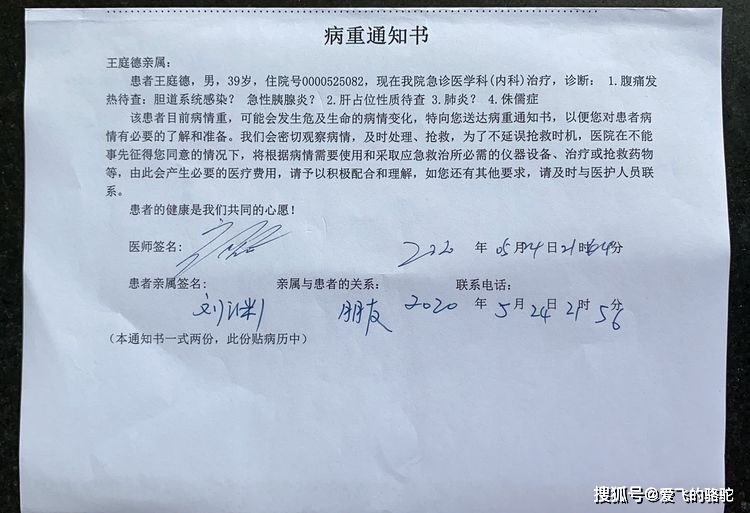 病重通知书
王庭德亲属:
患者王庭德,男,39岁,住院号0000525082,现在我院急诊医学科(内科)治疗,诊断: 1.腹痛发
热待查:胆道系统感染? 急性胰腺炎? 2.肝占位性质待查 3.肺炎? 4.侏儒症
该患者目前病情重,可能会发生危及生命的病情变化,特向您送达病重通知书,以便您对患者病
情有必要的了解和准备。我们会密切观察病情,及时处理、抢救,为了不延误抢救时机,医院在不能
事先征得您同意的情况下,将根据病情需要使用和采取应急救治所必需的仪器设备、治疗或抢救药物
等,由此会产生必要的医疗费用,请予以积极配合和理解,如您还有其他要求,请及时与医护人员联
系。
患者的健康是我们共同的心愿!
医师签名: 2020 年 05月24日21时 分
患者亲属签名: 亲属与患者的关系: 联系电话:
刘 朋友 2020 年 5月24日21时56分
(本通知书一式两份,此份贴病历中)
搜狐号@爱飞的骆驼